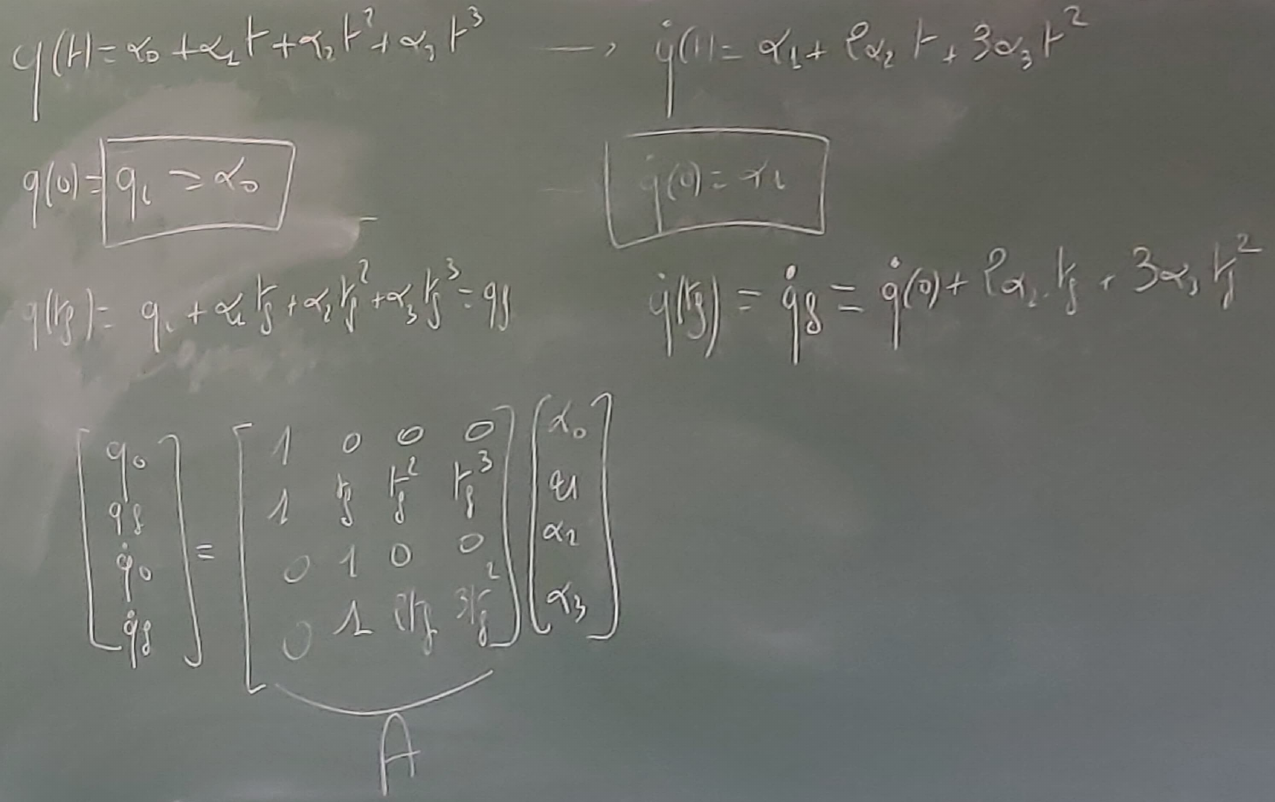 q(t) = α₀ + α₁t + α₂t² + α₃t³ → q̇(t) = α₁ + 2α₂t + 3α₃t²
q(0) = qᵢ = α₀ q̇(0) = α₁
q(t_f) = qᵢ + α₁t_f + α₂t_f² + α₃t_f³ = q_f q̇(t_f) = q̇_f = q̇(0) + 2α₂.t_f + 3α₃t_f²
q₀ 1 0 0 0 α₀
q_f 1 t_f t_f² t_f³ α₁
q̇₀ = 0 1 0 0 α₂
q̇_f 0 1 2t_f 3t_f² α₃
A